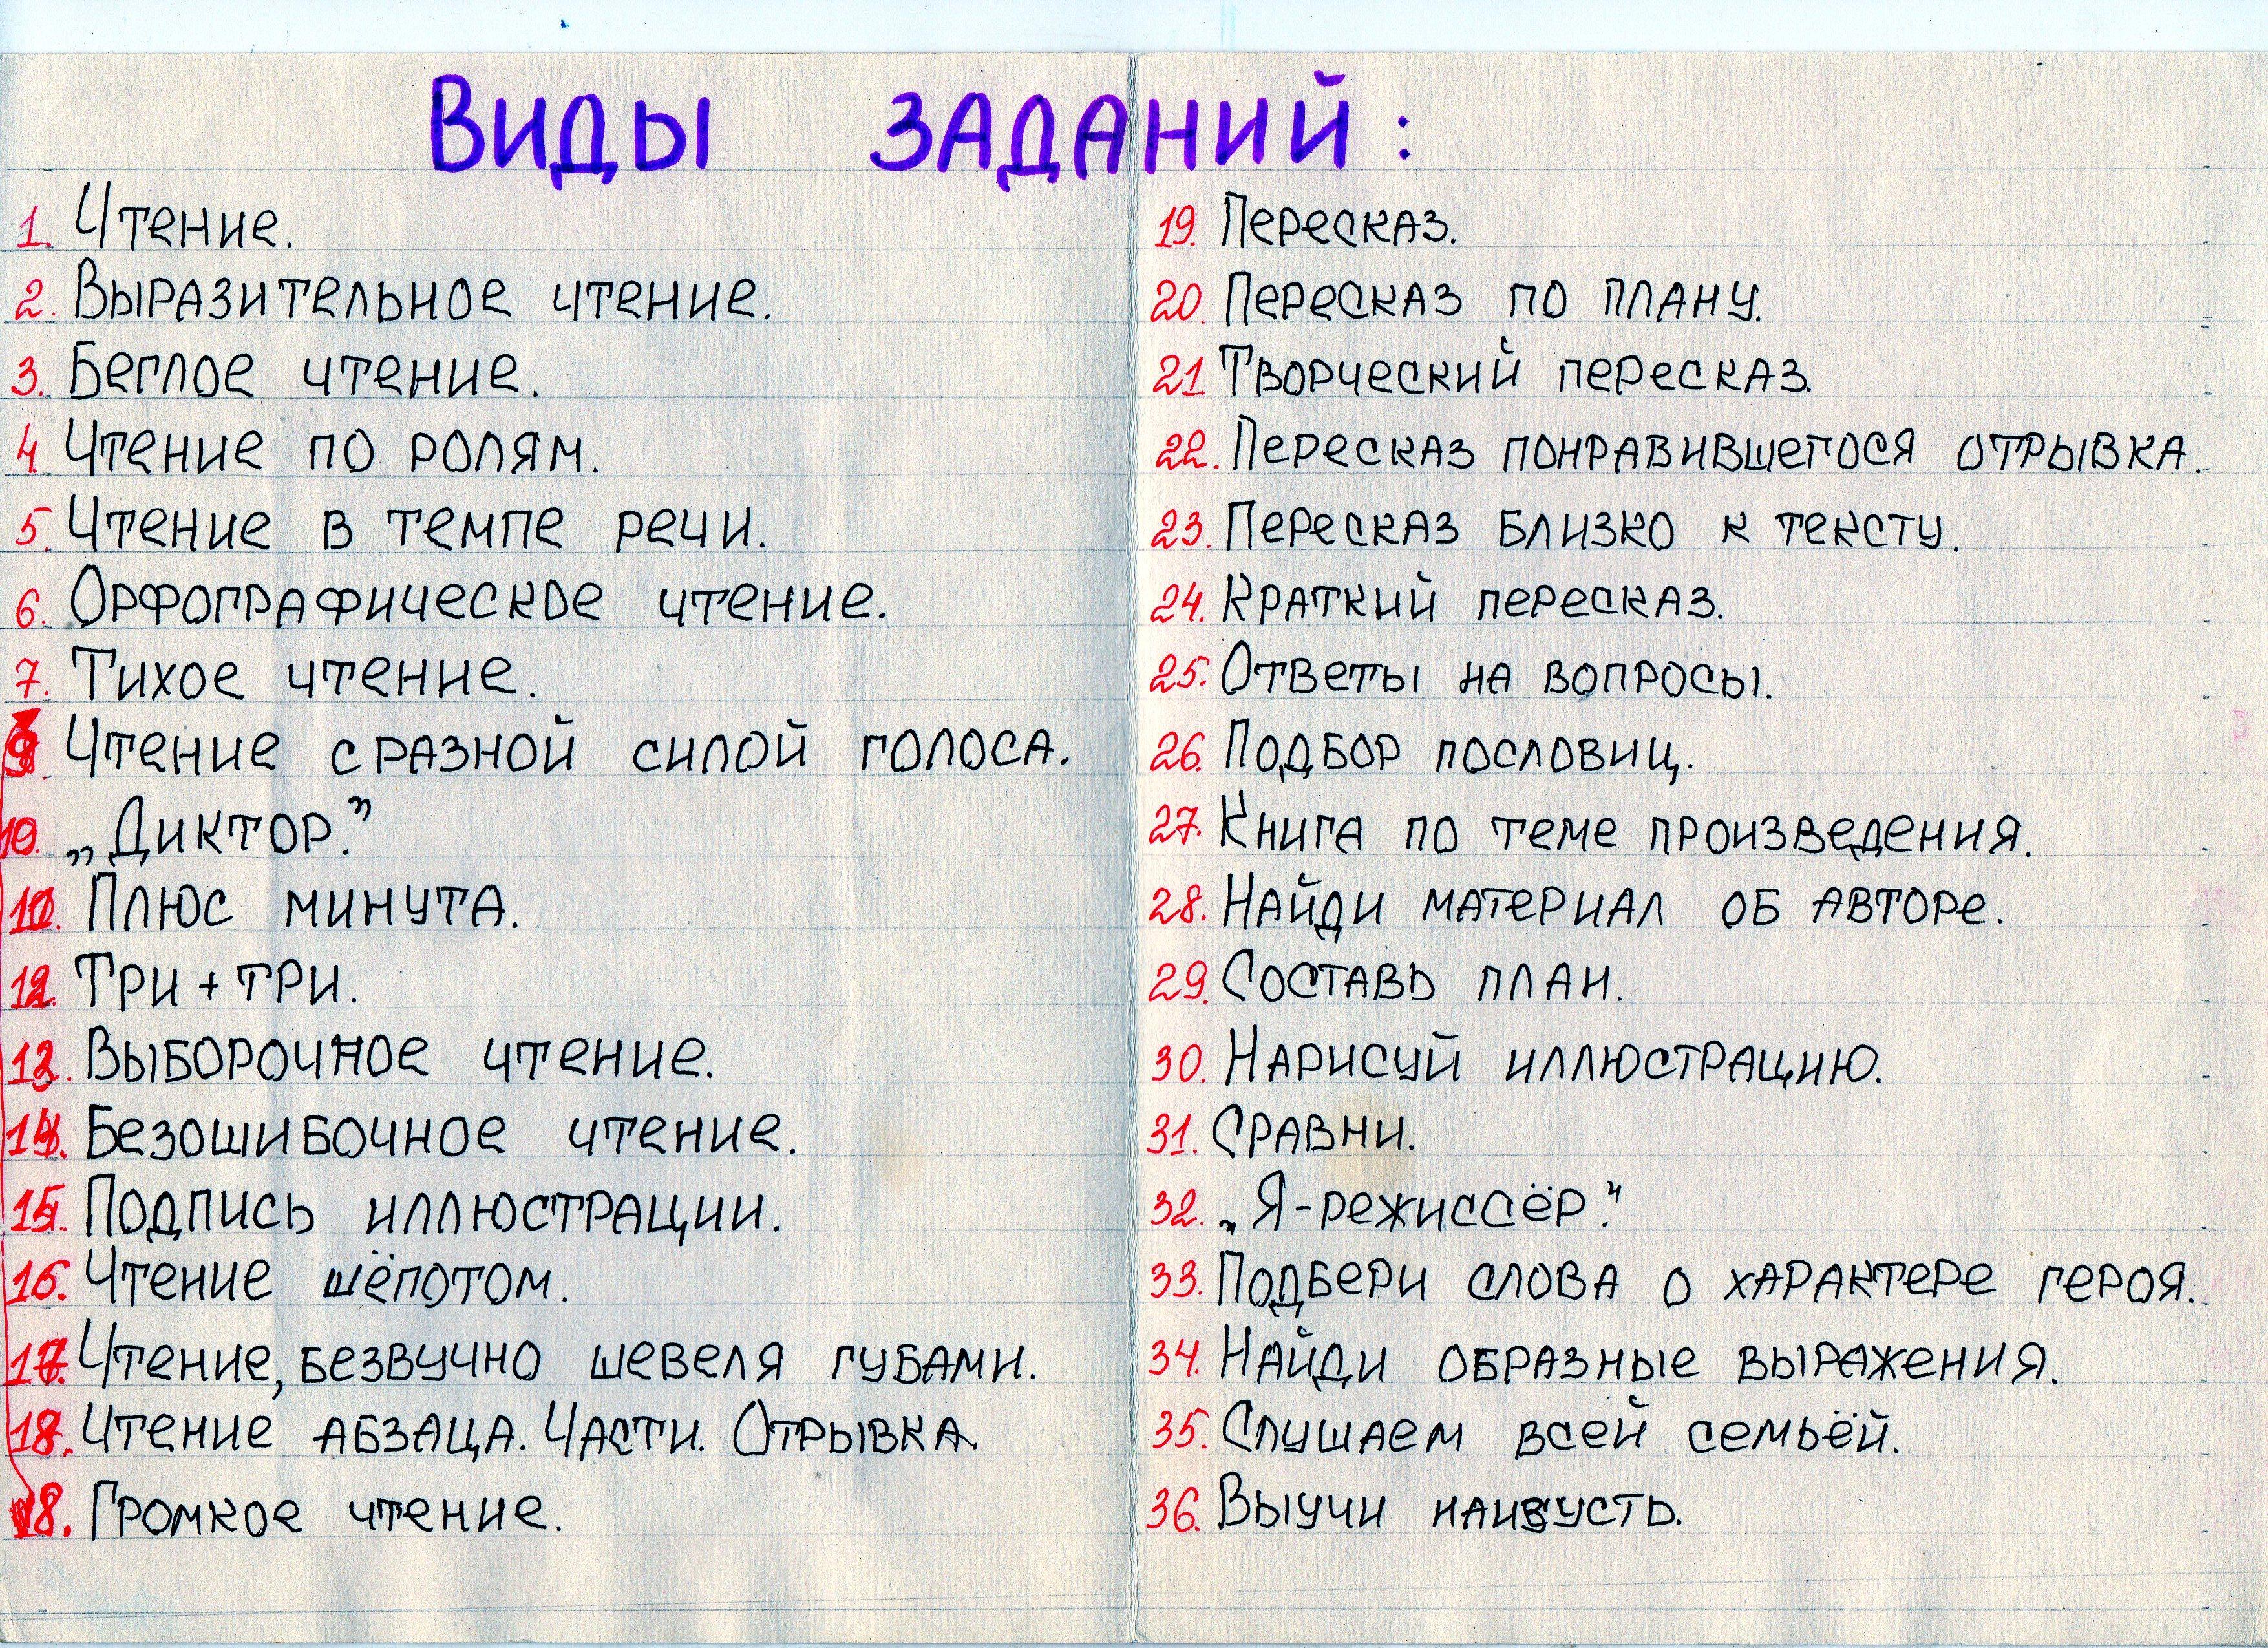 Виды заданий:
1. Чтение.
2. Выразительное чтение.
3. Беглое чтение.
4. Чтение по ролям.
5. Чтение в темпе речи.
6. Орфографическое чтение.
7. Тихое чтение.
Чтение с разной силой голоса.
„Диктор."
Плюс минута.
Три + три.
Выборочное чтение.
Безошибочное чтение.
Подпись иллюстрации.
16. Чтение шёпотом.
17. Чтение, беззвучно шевеля губами.
18. Чтение абзаца. Части. Отрывка.
18. Громкое чтение.
19. Пересказ.
20. Пересказ по плану.
21. Творческий пересказ.
22. Пересказ понравившегося отрывка.
23. Пересказ близко к тексту.
24. Краткий пересказ.
25. Ответы на вопросы.
26. Подбор пословиц.
27. Книга по теме произведения.
28. Найди материал об авторе.
29. Составь план.
30. Нарисуй иллюстрацию.
31. Сравни.
32. „Я-режиссёр."
33. Подбери слова о характере героя.
34. Найди образные выражения.
35. Слушаем всей семьёй.
36. Выучи наизусть.